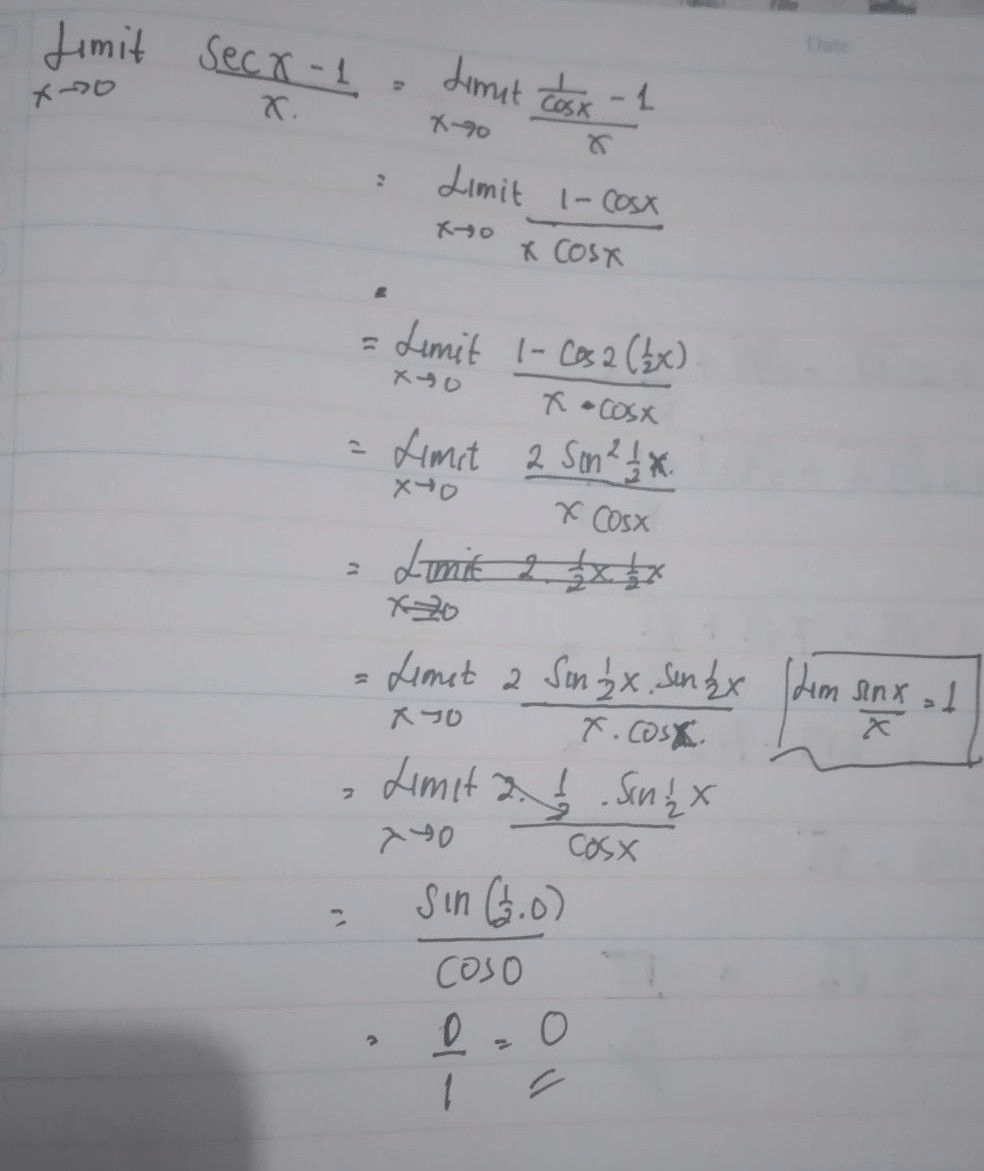 Date
Limit x→0 (Sec x - 1)/x. = Limit x→0 (1/cosx - 1)/x
= Limit x→0 (1 - cosx)/(x cosx)
=
= Limit x→0 (1 - Cos 2(½x))/(x • cosx)
= Limit x→0 (2 Sin² ½ x.)/(x cosx)
= Limit x→0 2. ½x. ½x
= Limit x→0 (2 Sin ½x. Sin ½x)/(x. cosx.) Lim sinx/x = 1
= Limit x→0 (2. ½ . Sin ½ x)/(cosx)
= Sin (½.0)/cos0
= 0/1 = 0